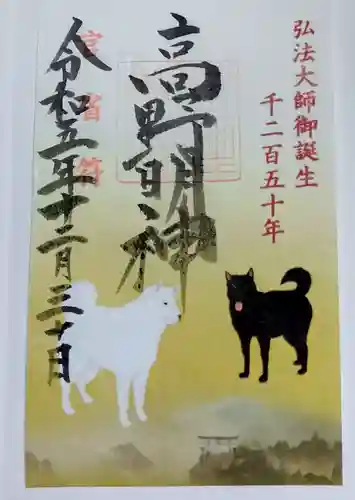 弘法大師御誕生
千二百五十年
高野明神
官省符
令和五年十二月三十日